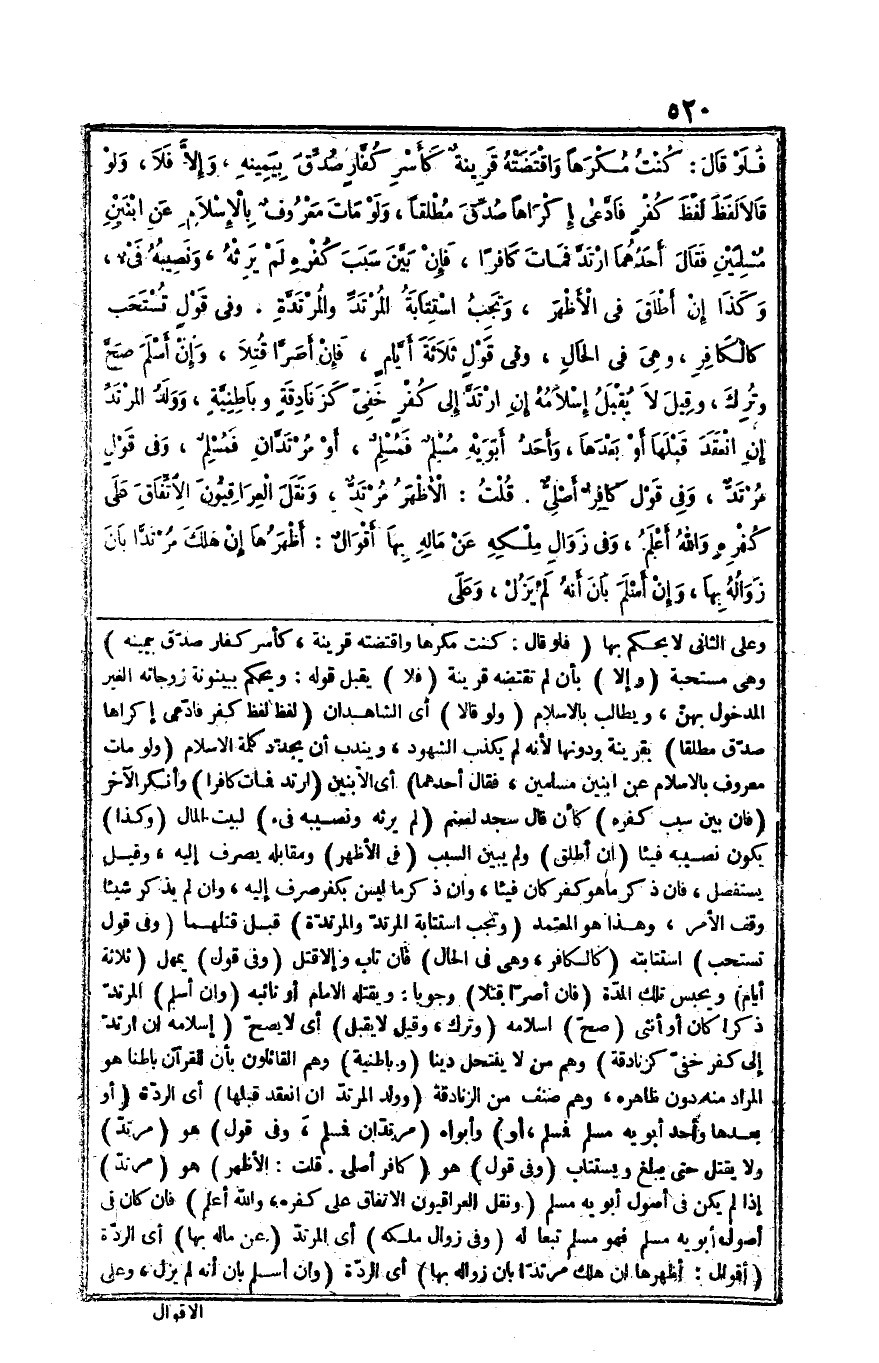 ٥٢٠
فَلَوْ قَالَ : كُنْتُ مُكْرَهاً وَاقْتَضَتْهُ قَرِينَةٌ كَأَسْرِ كُفَّارٍ صُدِّقَ بِيَمِينِهِ ، وَإِلاَّ فَلَا ، وَلَوْ
قَالاَ لَفَظَ لَفْظَ كُفْرٍ فَادَّعَى إِكْرَاهاً صُدِّقَ مُطْلَقاً ، وَلَوْ مَاتَ مَعْرُوفٌ بِالْإِسْلَامِ عَنِ ابْنَيْنِ
مُسْلِمَيْنِ فَقَالَ أَحَدُهُمَا ارْتَدَّ فَمَاتَ كَافِرًا ، فَإِنْ بَيَّنَ سَبَبَ كُفْرِهِ لَمْ يَرِثْهُ ، وَنَصِيبُهُ فَىْءٌ ،
وَكَذَا إِنْ أَطْلَقَ فى الْأَظْهَرِ ، وَتَجِبُ اسْتِتَابَةُ المُرْتَدِّ والمُرْتَدَّةِ . وفى قَوْلٍ تُسْتَحَب
كالْكَافِرِ ، وهِىَ فى الحَالِ ، وفى قَوْلٍ ثَلَاثَةَ أَيَّامٍ ، فَإِنْ أَصَرَّا قُتِلَا ، وَإِنْ أَسْلَمَ صَحَّ
وتُرِكَ ، وقِيلَ لاَ يُقْبَلُ إِسْلَامُهُ إِنِ ارْتَدَّ إِلى كُفْرٍ خَفِىّ كَزَنَادِقَةٍ وبَاطِنِيَّةٍ ، وَوَلَدُ المُرْتَدِّ
إِنِ انْعَقَدَ قَبْلَهَا أَوْ بَعْدَهَا ، وَأَحَدُ أَبَوَيْهِ مُسْلِمٌ فَمُسْلِمٌ ، أَوْ مُرْتَدَّانِ فَمُسْلِمٌ ، وَفى قَوْلٍ
مُرْتَدٌّ ، وَفِى قَوْلٍ كَافِرٌ أَصْلِىٌّ . قُلْتُ : الْأَظْهَرُ مُرْتَدٌّ ، وَنَقَلَ الْعِرَاقِيُّونَ الِاتِّفَاقَ عَلَى
كُفْرِهِ وَاللهُ أَعْلَمُ ، وَفى زَوَالِ مِلْكِهِ عَنْ مَالِهِ بِهَا أَقْوَالٌ : أَظْهَرُهَا إِنْ هَلَكَ مُرْتَدًّا بَانَ
زَوَالُهُ بِهَا ، وَإِنْ أَسْلَمَ بَانَ أَنَّهُ لَمْ يَزُلْ ، وَعَلَى
وعلى الثانى لا يحكم بها ( فلو قال : كنت مكرها واقتضته قرينة ، كأسر كفار صدّق بيمينه )
وهى مستحبة ( وإلا ) بأن لم تقتضه قرينة ( فلا ) يقبل قوله : ويحكم ببينونة زوجاته الغير
المدخول بهنّ ، ويطالب بالاسلام ( ولو قالا ) أى الشاهدان ( لفظ لفظ كفر فادّعى إكراها
صدّق مطلقا ) بقرينة ودونها لأنه لم يكذب الشهود ، ويندب أن يجدّد كلمة الاسلام ( ولو مات
معروف بالاسلام عن ابنين مسلمين ، فقال أحدهما ) أى الابنين ( ارتد فمات كافرا ) وأنكر الآخر
( فان بين سبب كفره ) كأن قال سجد لصنم ( لم يرثه ونصيبه فىء ) لبيت المال ( وكذا )
يكون نصيبه فيئا ( ان أطلق ) ولم يبين السبب ( فى الأظهر ) ومقابله يصرف إليه ، وقيل
يستفصل ، فان ذكر ما هو كفر كان فيئا ، وان ذكر ما ليس بكفر صرف إليه ، وان لم يذكر شيئا
وقف الأمر ، وهذا هو المعتمد ( وتجب استتابة المرتدّ والمرتدّة ) قبل قتلهما ( وفى قول
تستحب ) استتابته ( كالكافر ، وهى فى الحال ) فان تاب وإلا قتل ( وفى قول ) يمهل ( ثلاثة
أيام ) ويحبس تلك المدّة ( فان أصرّا قتلا ) وجوبا : ويقتله الامام أو نائبه ( وان أسلم ) المرتدّ
ذكرا كان أو أنثى ( صحّ ) اسلامه ( وترك ، وقيل لا يقبل ) أى لا يصحّ ( إسلامه ان ارتدّ
إلى كفر خفىّ كزنادقة ) وهم من لا ينتحل دينا ( وباطنية ) وهم القائلون بأن للقرآن باطنا هو
المراد منه دون ظاهره ، وهم صنف من الزنادقة ( وولد المرتدّ ان انعقد قبلها ) أى الردّة ( أو
بعدها وأحد أبويه مسلم فمسلم ، أو ) وأبواه ( مرتدّان فمسلم ، وفى قول ) هو ( مرتدّ )
ولا يقتل حتى يبلغ ويستتاب ( وفى قول ) هو ( كافر أصلى . قلت : الأظهر ) هو ( مرتدّ )
إذا لم يكن فى أصول أبويه مسلم ( ونقل العراقيون الاتفاق على كفره ، والله أعلم ) فان كان فى
أصول أبويه مسلم فهو مسلم تبعا له ( وفى زوال ملكه ) أى المرتدّ ( عن ماله بها ) أى الردّة
( أقوال : أظهرها ان هلك مرتدّا بان زواله بها ) أى الردّة ( وان أسلم بان أنه لم يزل ، وعلى
الاقوال